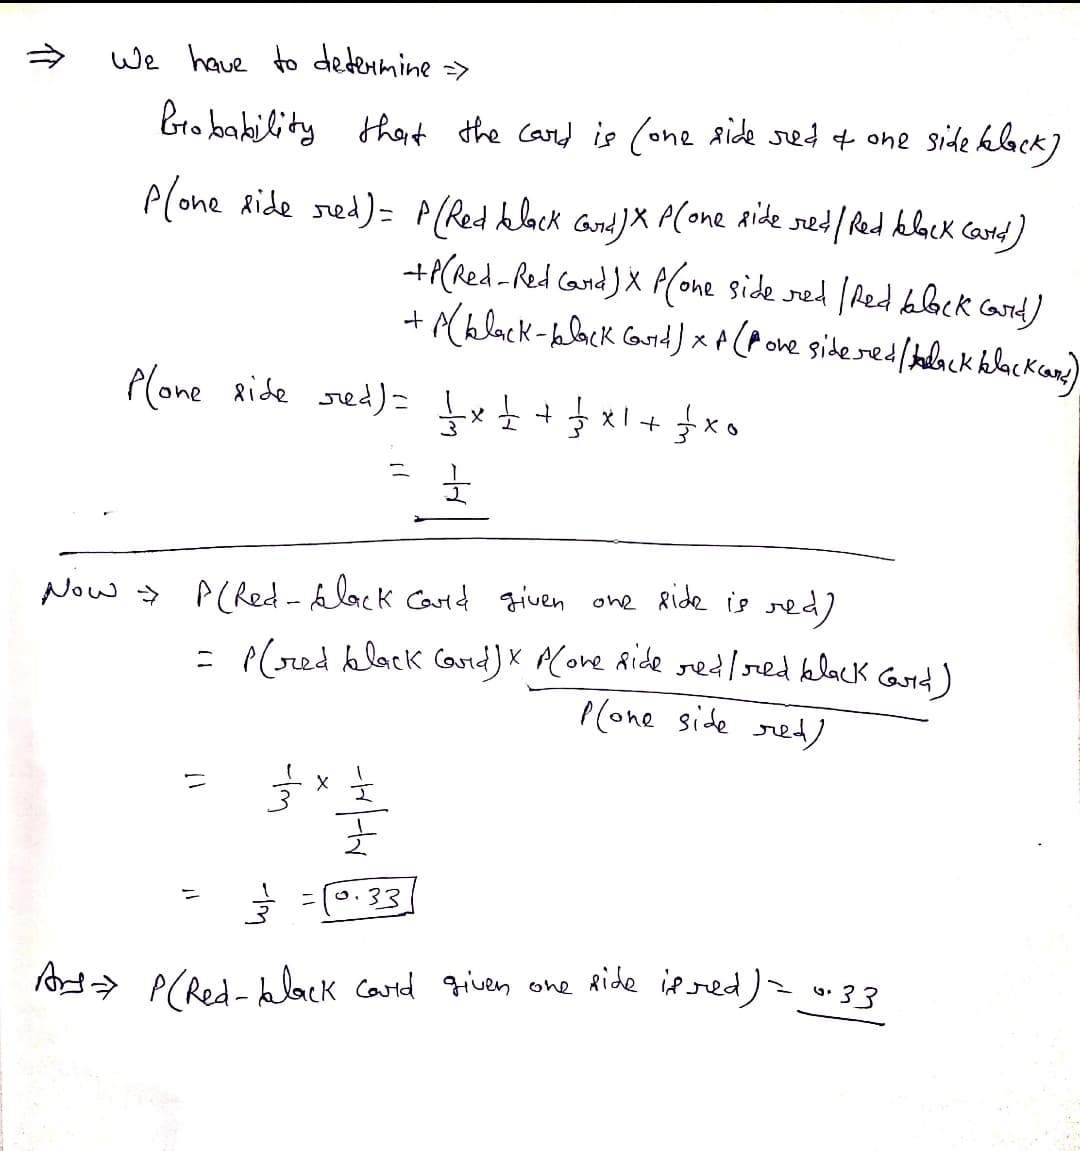 ⇒ We have to determine ⇒
Probability that the card is (one side red & one side black)
P(one side red) = P(Red black card) × P(one side red / Red black card)
+ P(Red-Red card) × P(one side red / Red black card)
+ P(black-black card) × P(P one side red / black black card)
P(one side red) = 1/3 × 1/2 + 1/3 × 1 + 1/3 × 0
= 1/2
Now ⇒ P(Red-black card given one side is red)
= P(red black card) × P(one side red / red black card)
P(one side red)
= 1/3 × 1/2
1/2
= 1/3 = 0.33
Ans ⇒ P(Red-black card given one side is red) = 0.33